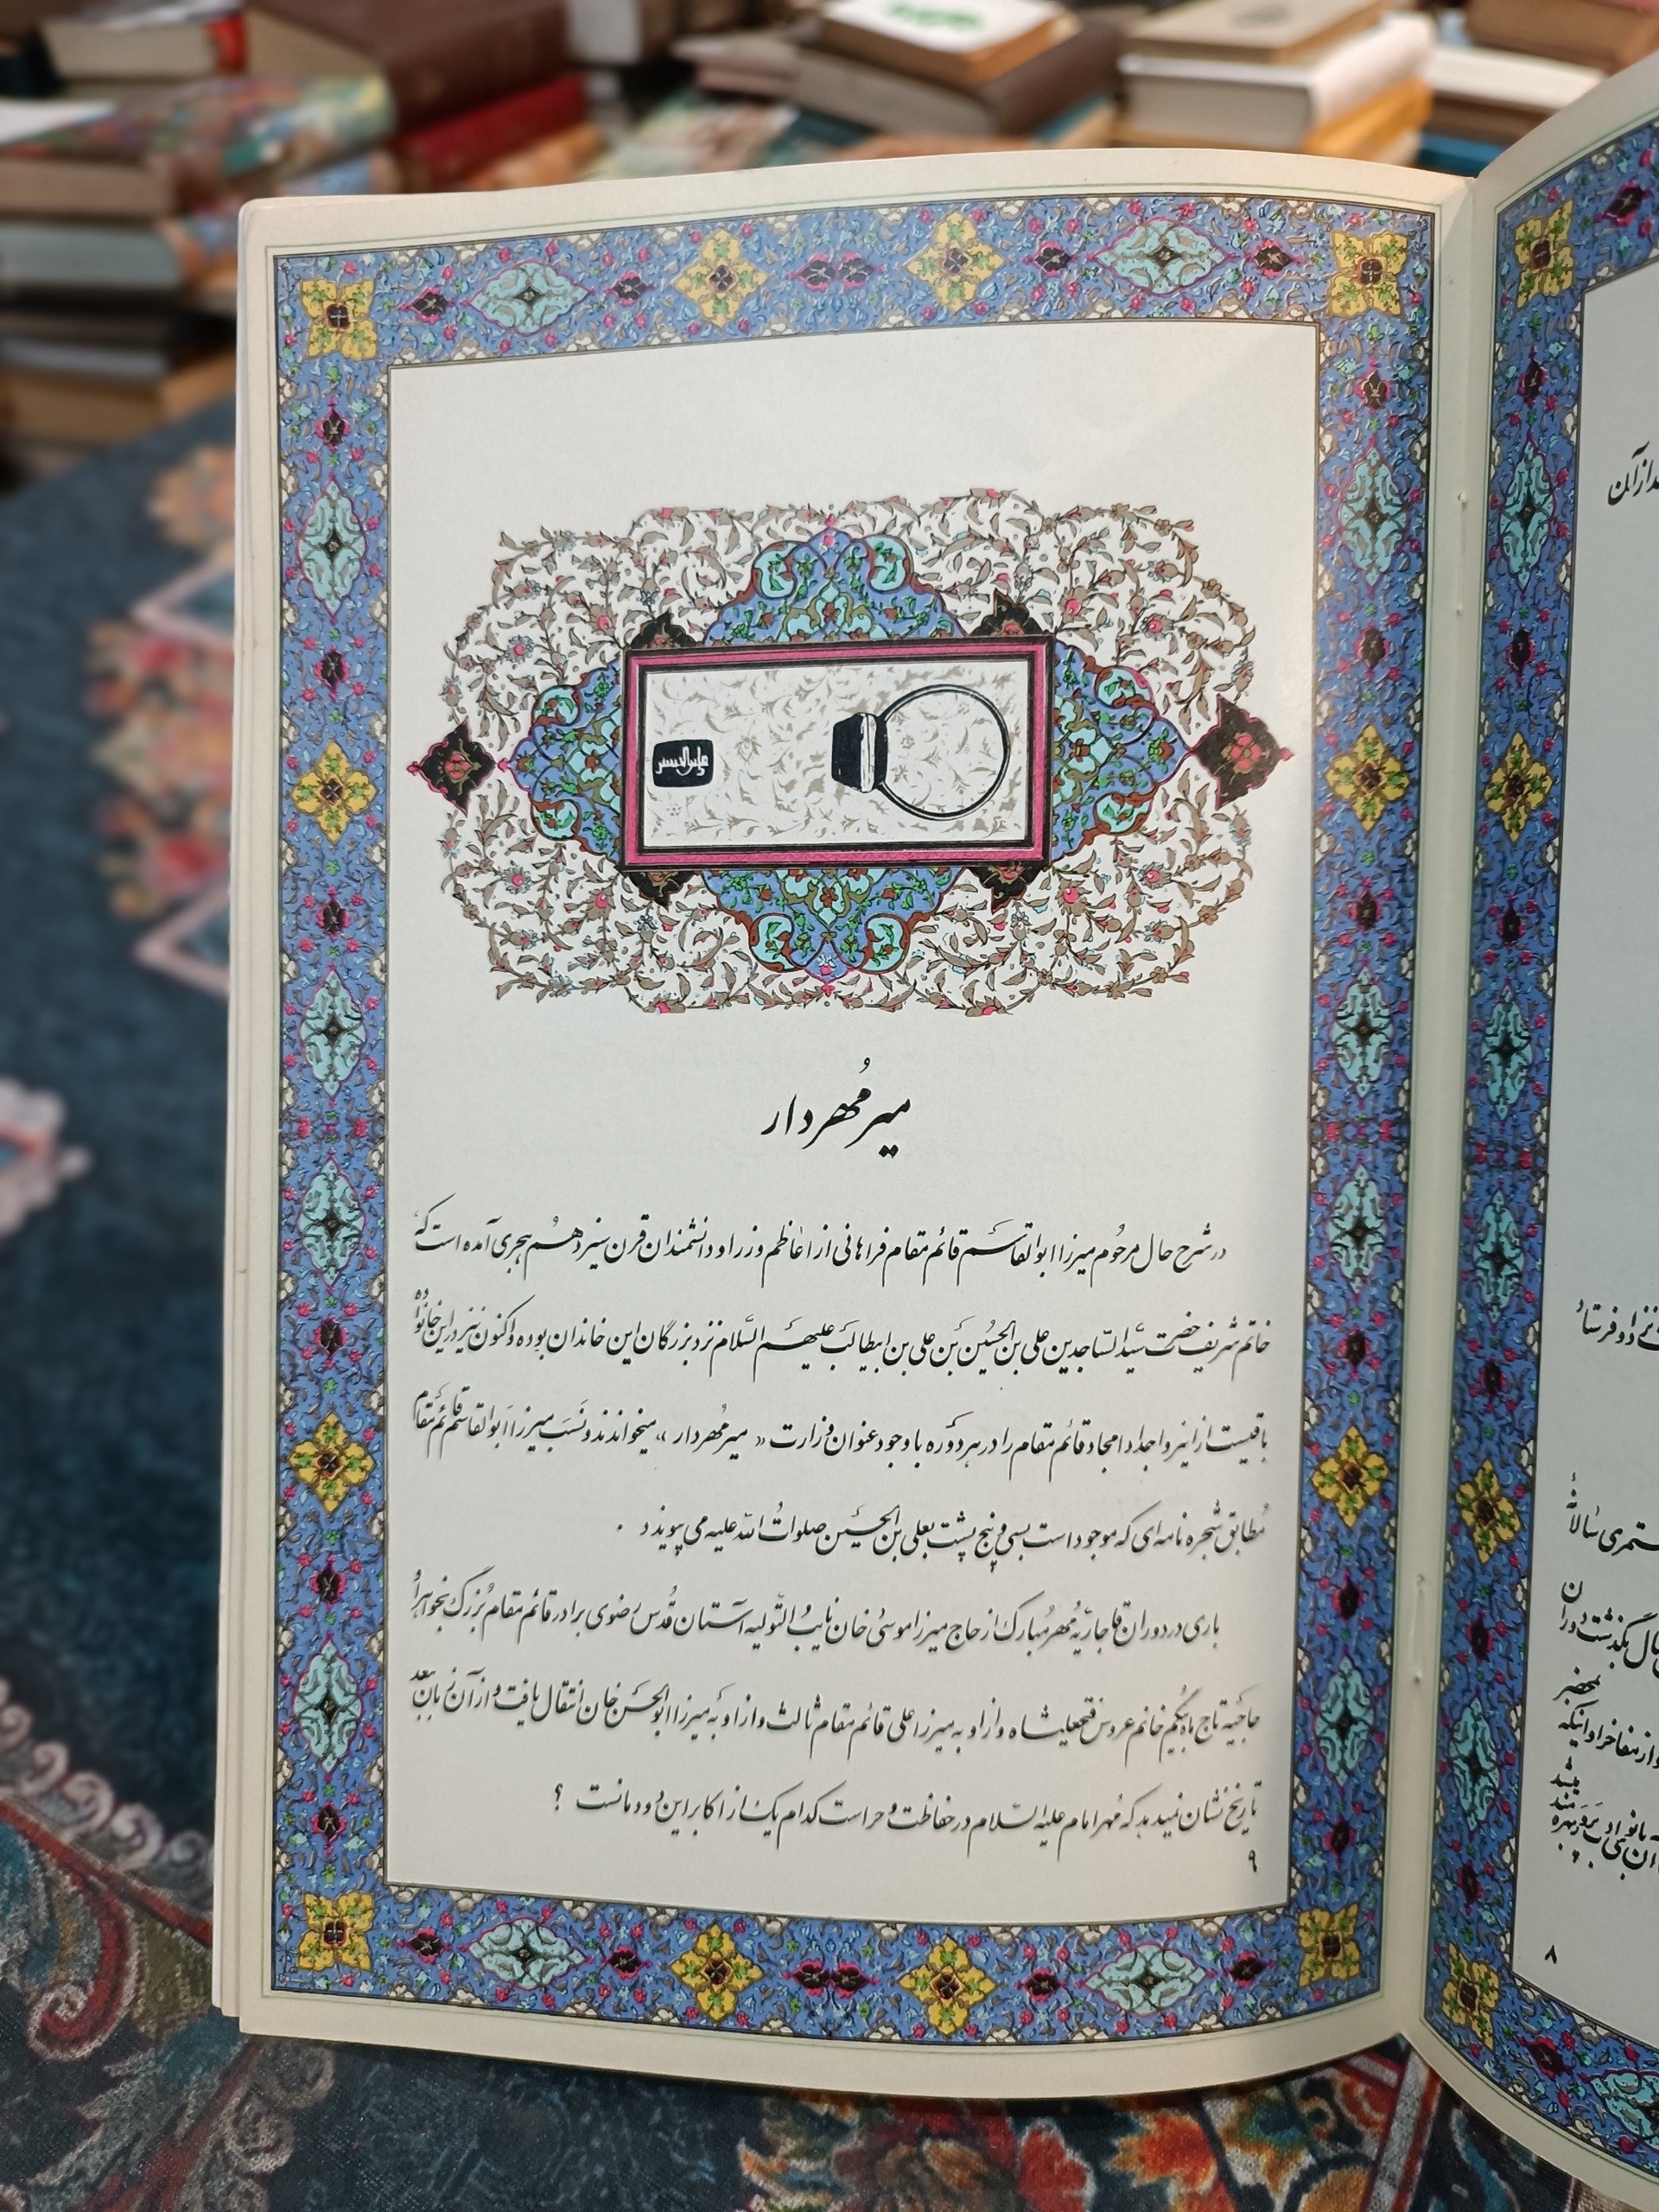 علی بن الحسین
میرمُهردار
در شرح حال مرحوم میرزا ابوالقاسم قائم مقام فراهانی از اعاظم وزرا و دانشمندان قرن سیزدهم هجری آمده است که
خاتم شریف حضرت سیّد السّاجدین علی بن الحُسین بن علی بن ابیطالب علیهم السّلام نزد بزرگان این خاندان بوده و اکنون نیز در این خانواده
باقیست از اینرو اجداد امجاد قائم مقام را در هر دوره با وجود عنوان وزارت « میرمُهردار » میخواندند و نَسَب میرزا ابوالقاسم قائم مقام
مُطابق شجره نامه‌ای که موجود است بسی و پنج پشت بعلی بن الحسین صلوات اللّه علیه می پیوندد .
باری در دوران قاجاریّه مُهر مُبارک از حاج میرزا موسی خان نایب التّولیه آستان قُدس رضوی برادر قائم مقام بزرگ بخواهر او
حاجیّه تاج ماه بیگم خانم عروس فتحعلیشاه و از او به میرزا علی قائم مقام ثالث و از او به میرزا ابوالحسن خان انتقال یافت و از آن زمان ببعد
تاریخ نشان نمیدهد که مُهر امام علیه السّلام در حفاظت و حراست کدام یک از اکابر این دودمانست ؟
۹
۸